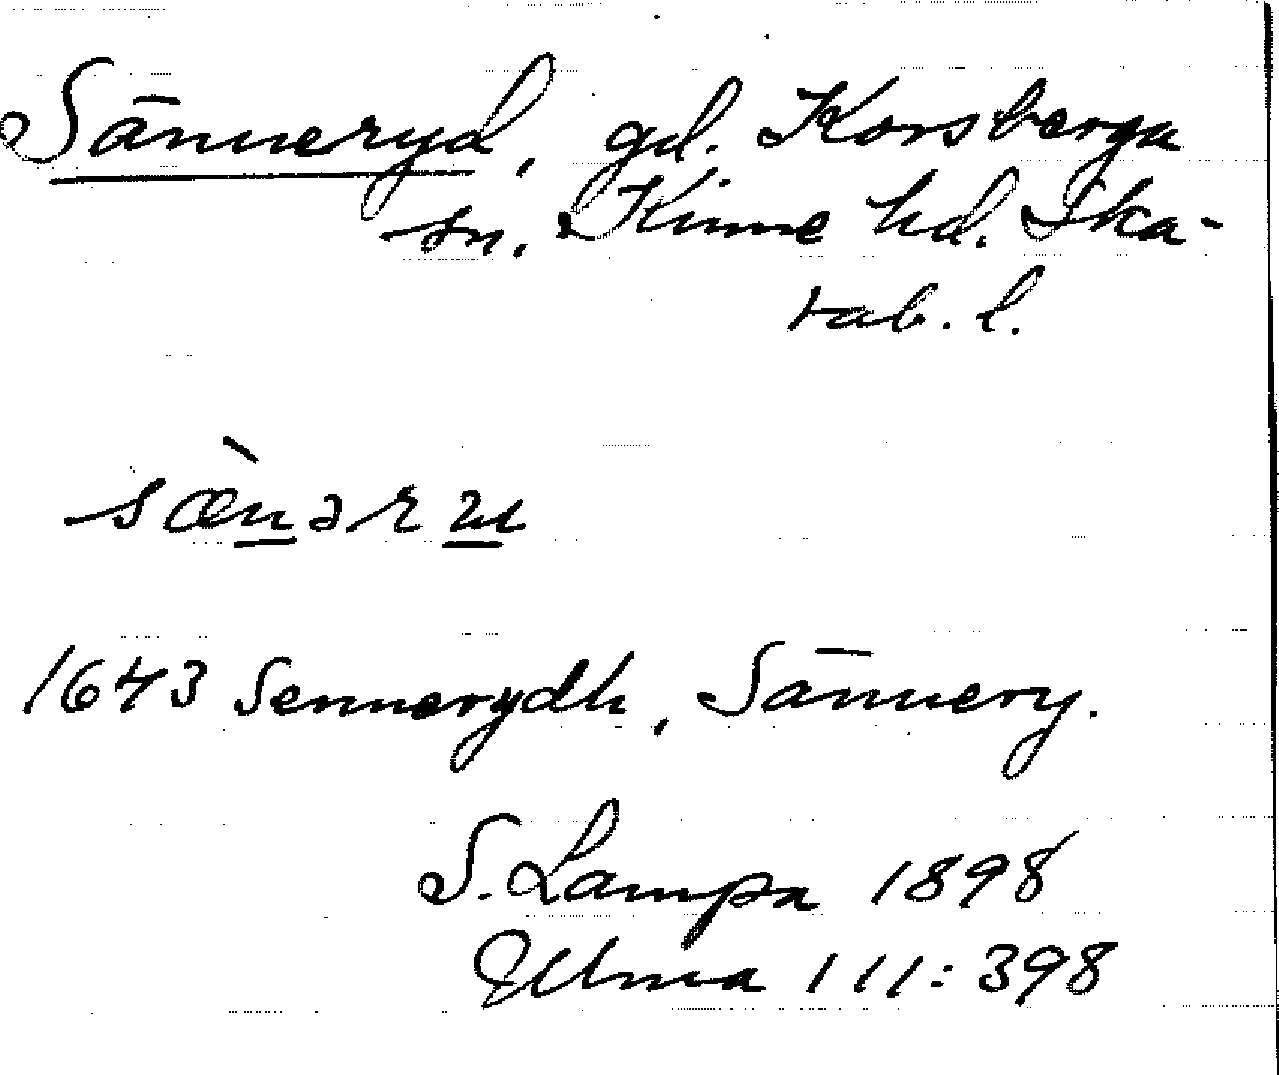 Sänneryd, gd. Korsberga
sn. Kinne hd. Ska-
rab. l.
sæ̀nəru
1643 Sennerydh, Sännery.
S. Lampa 1898
Ulma 111:398